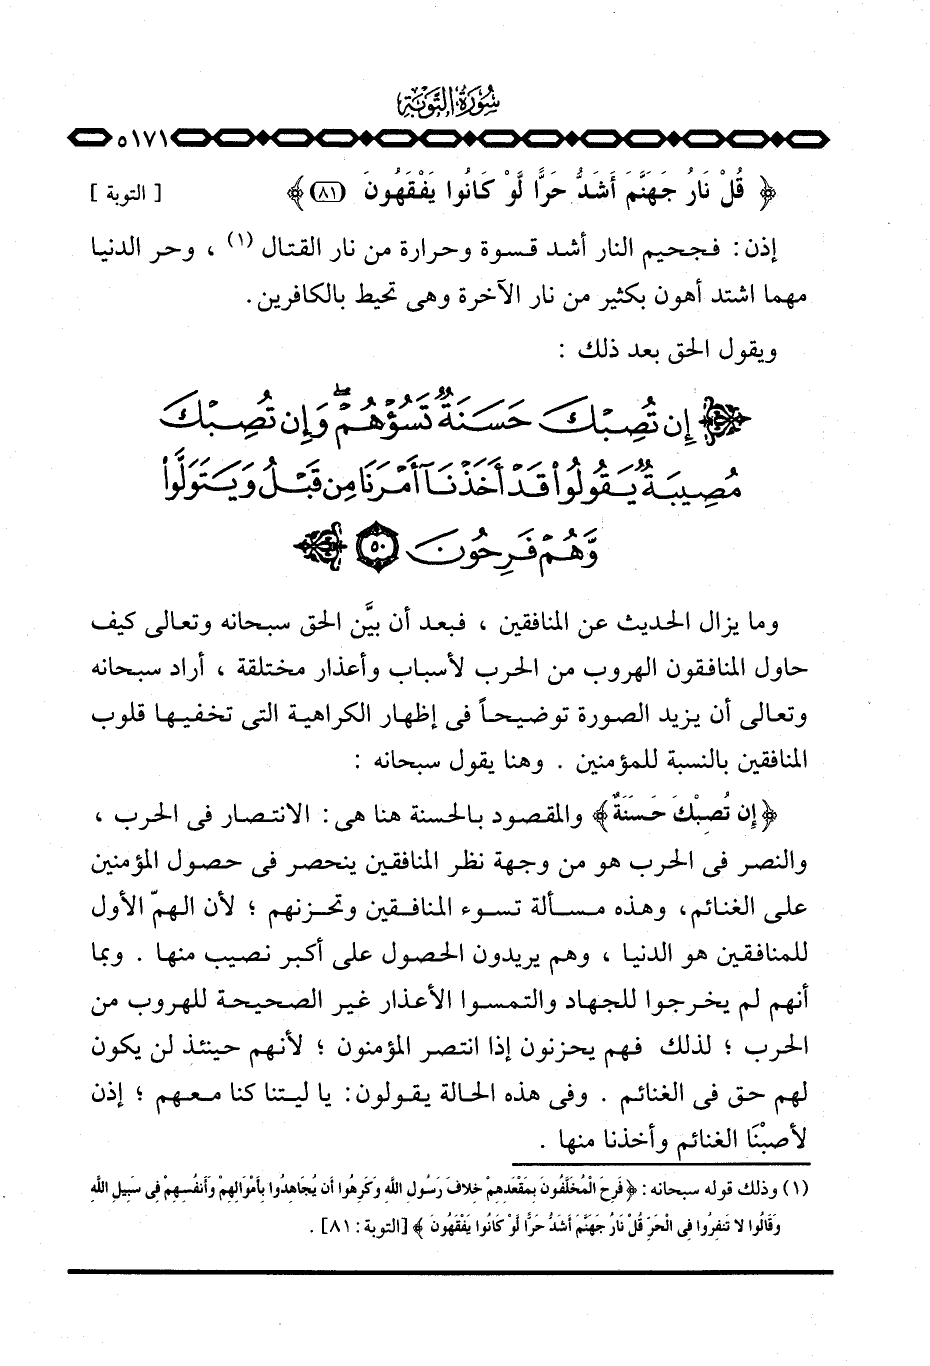 سُورَةُ التَّوْبَةِ
٥١٧١
﴿ قُلْ نَارُ جَهَنَّمَ أَشَدُّ حَرًّا لَّوْ كَانُوا يَفْقَهُونَ (٨١) ﴾ [ التوبة ]
إذن : فجحيم النار أشد قسوة وحرارة من نار القتال (١) ، وحر الدنيا
مهما اشتد أهون بكثير من نار الآخرة وهى تحيط بالكافرين .
ويقول الحق بعد ذلك :
﴿ إِن تُصِبْكَ حَسَنَةٌ تَسُؤْهُمْ ۖ وَإِن تُصِبْكَ
مُصِيبَةٌ يَقُولُوا۟ قَدْ أَخَذْنَآ أَمْرَنَا مِن قَبْلُ وَيَتَوَلَّوا۟
وَّهُمْ فَرِحُونَ ٥٠ ﴾
وما يزال الحديث عن المنافقين ، فبعد أن بيَّن الحق سبحانه وتعالى كيف
حاول المنافقون الهروب من الحرب لأسباب وأعذار مختلقة ، أراد سبحانه
وتعالى أن يزيد الصورة توضيحاً فى إظهار الكراهية التى تخفيها قلوب
المنافقين بالنسبة للمؤمنين . وهنا يقول سبحانه :
﴿ إِن تُصِبْكَ حَسَنَةٌ ﴾ والمقصود بالحسنة هنا هى : الانتصار فى الحرب ،
والنصر فى الحرب هو من وجهة نظر المنافقين ينحصر فى حصول المؤمنين
على الغنائم، وهذه مسألة تسوء المنافقين وتحزنهم ؛ لأن الهمّ الأول
للمنافقين هو الدنيا ، وهم يريدون الحصول على أكبر نصيب منها . وبما
أنهم لم يخرجوا للجهاد والتمسوا الأعذار غير الصحيحة للهروب من
الحرب ؛ لذلك فهم يحزنون إذا انتصر المؤمنون ؛ لأنهم حينئذ لن يكون
لهم حق فى الغنائم . وفى هذه الحالة يقولون : يا ليتنا كنا معهم ؛ إذن
لأصبْنَا الغنائم وأخذنا منها .
(١) وذلك قوله سبحانه : ﴿ فَرِحَ الْمُخَلَّفُونَ بِمَقْعَدِهِمْ خِلافَ رَسُولِ اللَّهِ وَكَرِهُوا أَن يُجَاهِدُوا بِأَمْوَالِهِمْ وَأَنفُسِهِمْ فِى سَبِيلِ اللَّهِ
وَقَالُوا لا تَنفِرُوا فِى الْحَرِّ قُلْ نَارُ جَهَنَّمَ أَشَدُّ حَرًّا لَّوْ كَانُوا يَفْقَهُونَ ﴾ [التوبة : ٨١] .